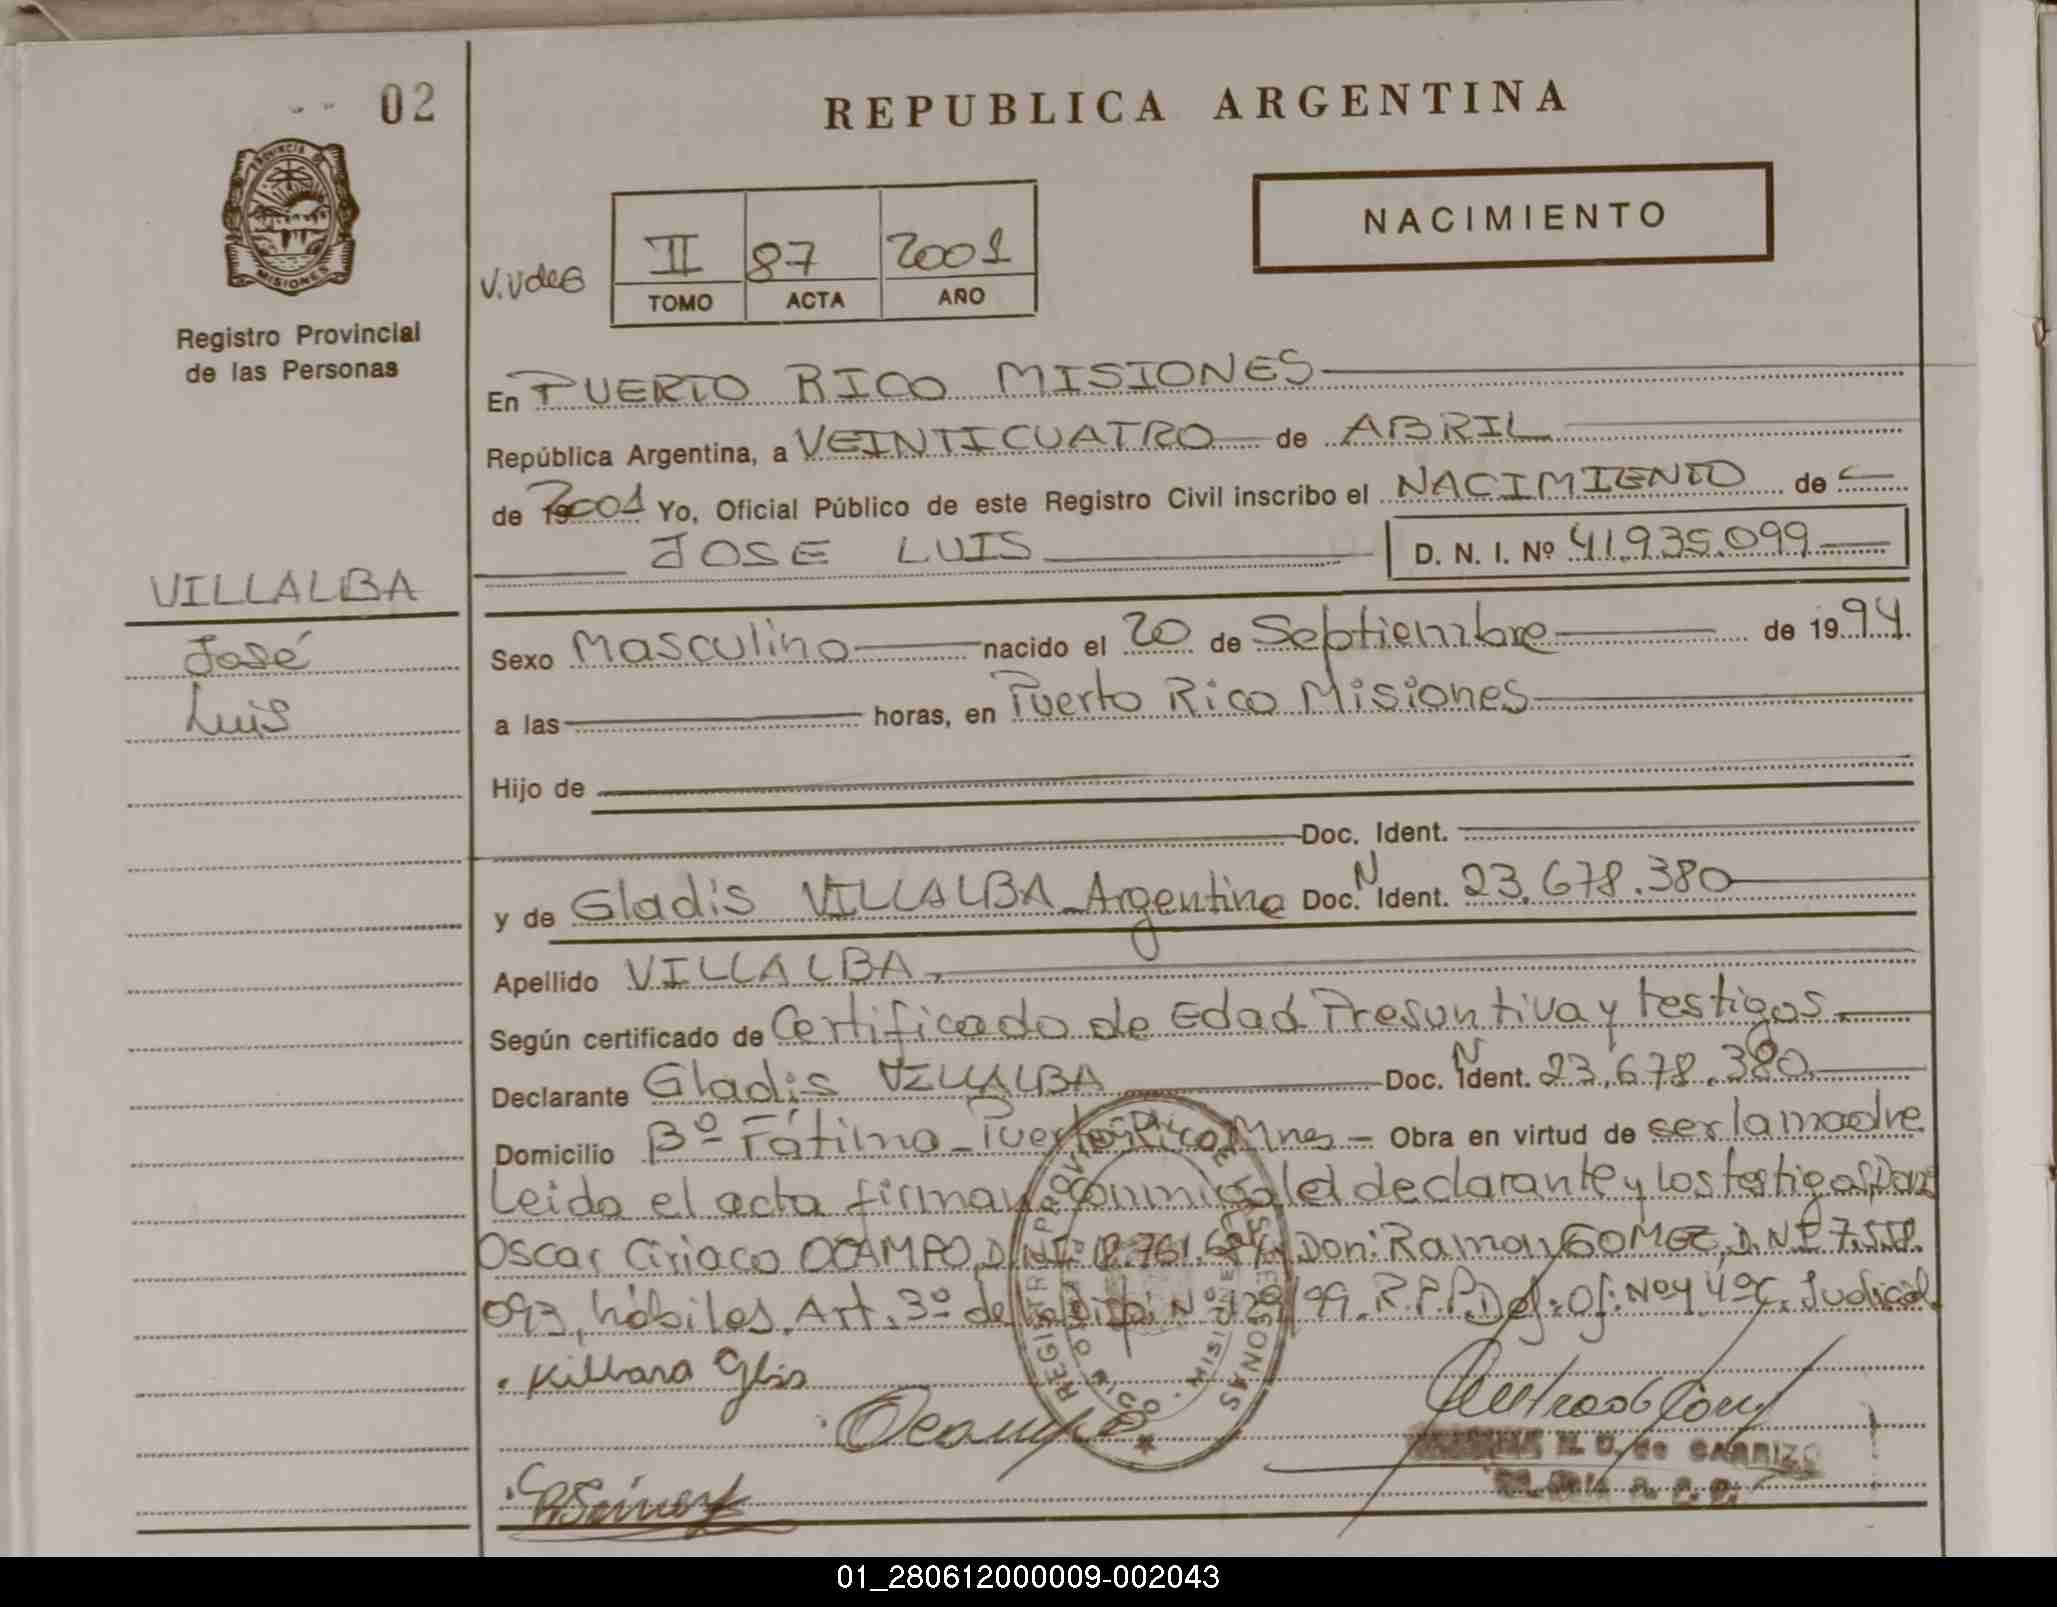 02
REPUBLICA ARGENTINA
NACIMIENTO
PROVINCIA DE MISIONES
Registro Provincial
de las Personas
II 87 2001
TOMO ACTA AÑO
En PUERTO RICO MISIONES
República Argentina, a VEINTICUATRO de ABRIL
de 2001 Yo, Oficial Público de este Registro Civil inscribo el NACIMIENTO de
JOSE LUIS D. N. I. Nº 41.935.099
VILLALBA
José
Luis
Sexo Masculino nacido el 20 de Septiembre de 1994.
a las horas, en Puerto Rico Misiones
Hijo de
Doc. Ident.
y de Gladis VILLALBA - Argentina Doc. N Ident. 23.678.380
Apellido VILLALBA
Según certificado de Certificado de Edad Presuntiva y testigos
Declarante Gladis VILLALBA Doc. N Ident. 23.678.380
Domicilio Bº Fátima - Puerto Rico Mnes - Obra en virtud de ser la madre
Leida el acta firman conmigo el declarante y los testigos, Don
Oscar Ciriaco OCAMPO, D.N.I. Don: Ramon GOMEZ, D.N.I. 7.558.
093, hábiles, Art. 3º de la Dispi. Nº 129/99. R.P.P. Def. Of. Nº 4 4º C. Judicial
Ocampo
REGISTRO PROVINCIAL DE LAS PERSONAS
MISIONES
de CARRIZO
01_280612000009-002043